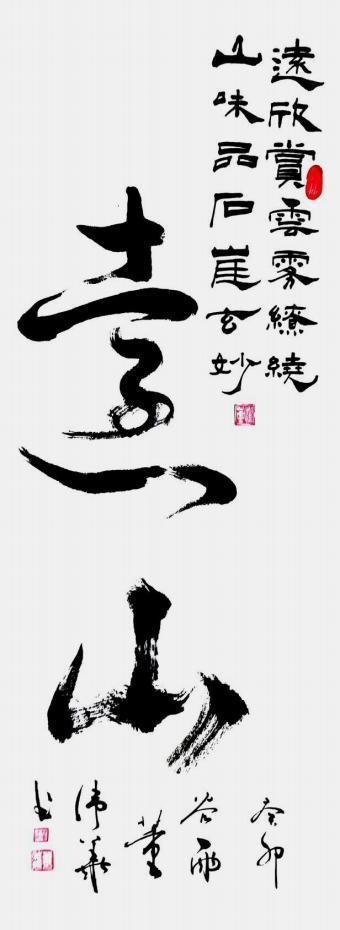 遠欣賞雲雾繚繞
山味品石崖玄妙
遠山
癸卯
谷雨
董
伟華
书